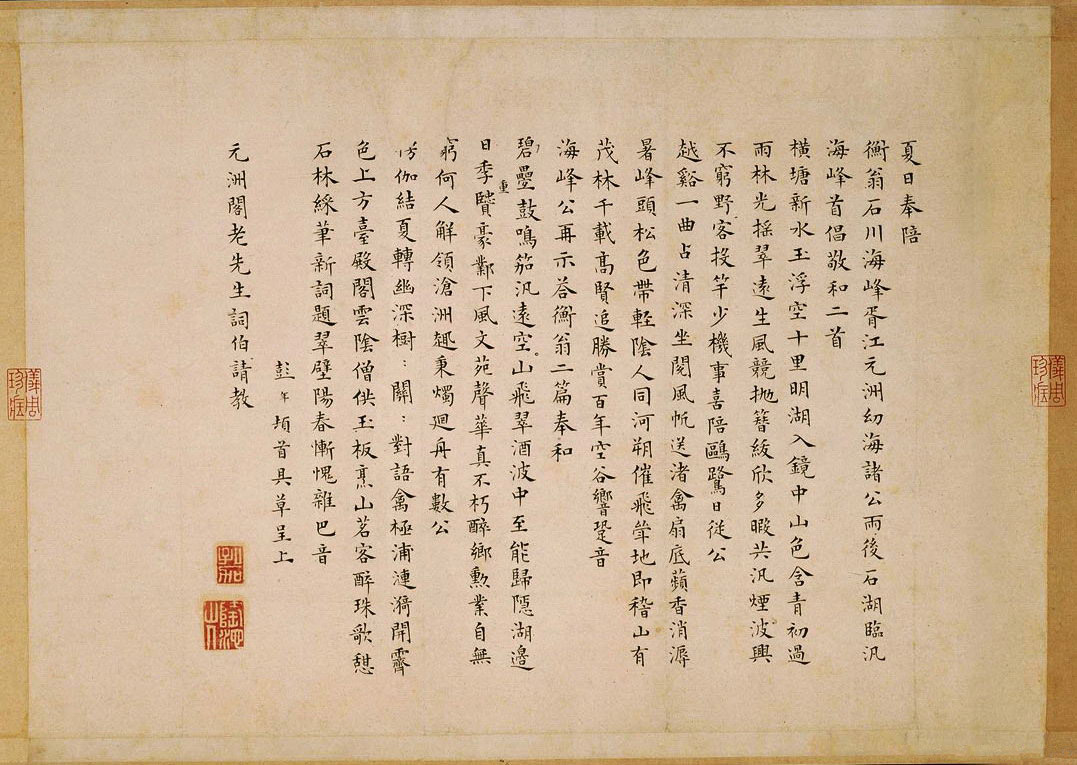 夏日奉陪
衡翁石川海峰胥江元洲幼海諸公雨後石湖臨汎
海峰首倡敬和二首
橫塘新水玉浮空十里明湖入鏡中山色含青初過
雨林光搖翠遠生風競拋簪紱欣多暇共汎煙波興
不窮野客投竿少機事喜陪鷗鷺日從公
越谿一曲占清深坐閱風帆送渚禽扇底蘋香消溽
暑峰頭松色帶輕陰人同河朔催飛斝地即稽山有
茂林千載高賢追勝賞百年空谷響跫音
海峰公再示荅衡翁二篇奉和
碧疊鼓鳴笳汎遠空山飛翠酒波中至能歸隱湖邊
日季重豪鄴下風文苑聲華真不朽醉鄉勳業自無
窮何人解領滄洲趣秉燭迴舟有數公
伽結夏轉幽深樹:關:對語禽極浦漣漪開霽
色上方臺殿閣雲陰僧供玉板烹山茗客醉珠歌憩
石林綵筆新詞題翠壁陽春慚愧雜巴音
彭年頓首具草呈上
元洲閣老先生詞伯請教